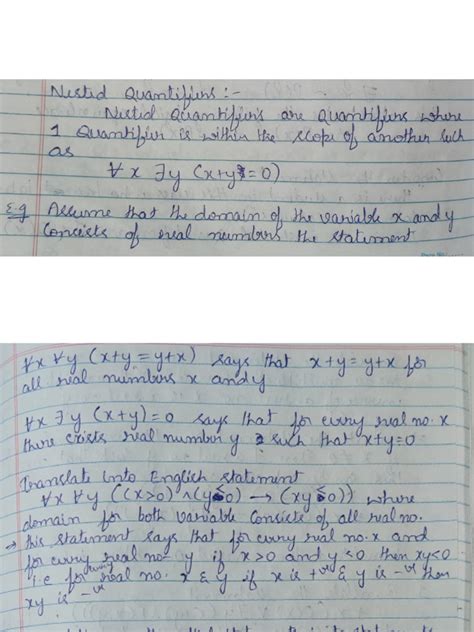 Nested Quantifiers :-
Nested Quantifiers are Quantifiers where
1 Quantifier is within the scope of another such
as
∀x ∃y (x+y=0)
E.g Assume that the domain of the variable x and y
Consists of real numbers the statement
∀x ∀y (x+y = y+x) says that x+y = y+x for
all real numbers x and y
∀x ∃y (x+y)=0 says that for every real no. x
there exists real number y such that x+y=0
Translate into English statement
∀x ∀y ((x>0) ∧ (y<0) → (xy<0)) where
domain for both variable consists of all real no.
→ this statement says that for every real no. x and
for every real no y if x>0 and y<0 then xy<0
i.e for every real no. x & y if x is +ve & y is -ve then
xy is -ve